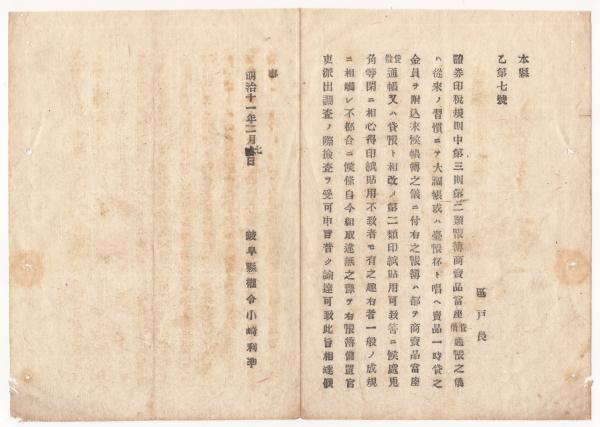 本縣
乙第七號
區戸長
證券印稅規則中第三則第二類帳簿商賣品當座貸借通帳之儀
ハ從來ノ習慣ニテ大福帳或ハ臺帳杯ト唱ヘ賣品一時貸之
金員ヲ附込來候帳簿之儀ニ付右之帳簿ハ都テ商賣品當座
貸借通帳又ハ貸帳ト相改メ第二類印紙貼用可致筈ニ候處兎
角等閑ニ相心得印紙貼用不致者モ有之趣右者一般ノ成規
ニ相觸レ不都合ニ候條自今相取違無之樣可右帳簿備置官
吏派出調査ノ際撿査ヲ受可申旨普ク諭達可致此旨相達候
事
明治十一年二月七日
岐阜縣權令小崎利準